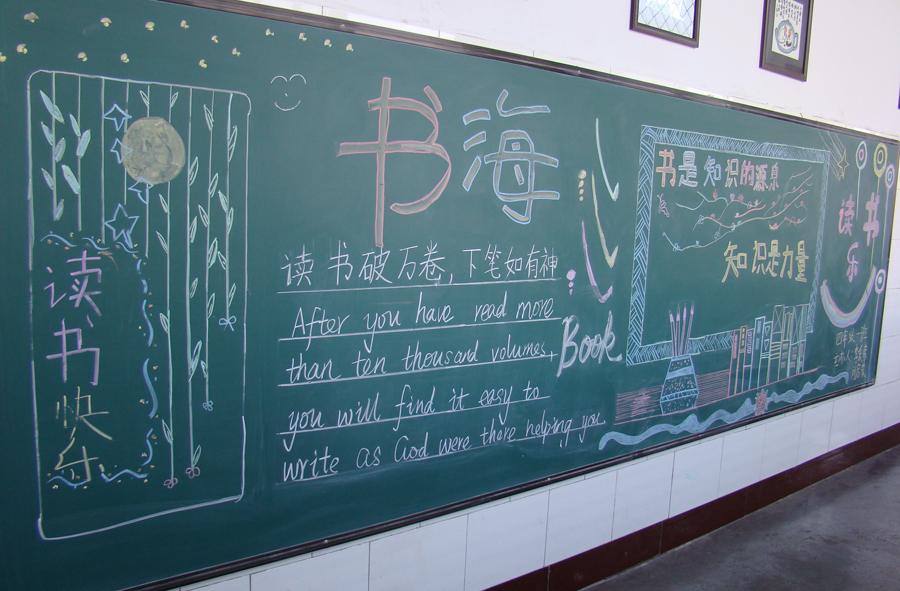 读书快乐
书海
读书破万卷，下笔如有神
After you have read more
than ten thousand volumes,
you will find it easy to
write as God were there helping you.
Book
书是知识的源泉
知识是力量
读书
乐